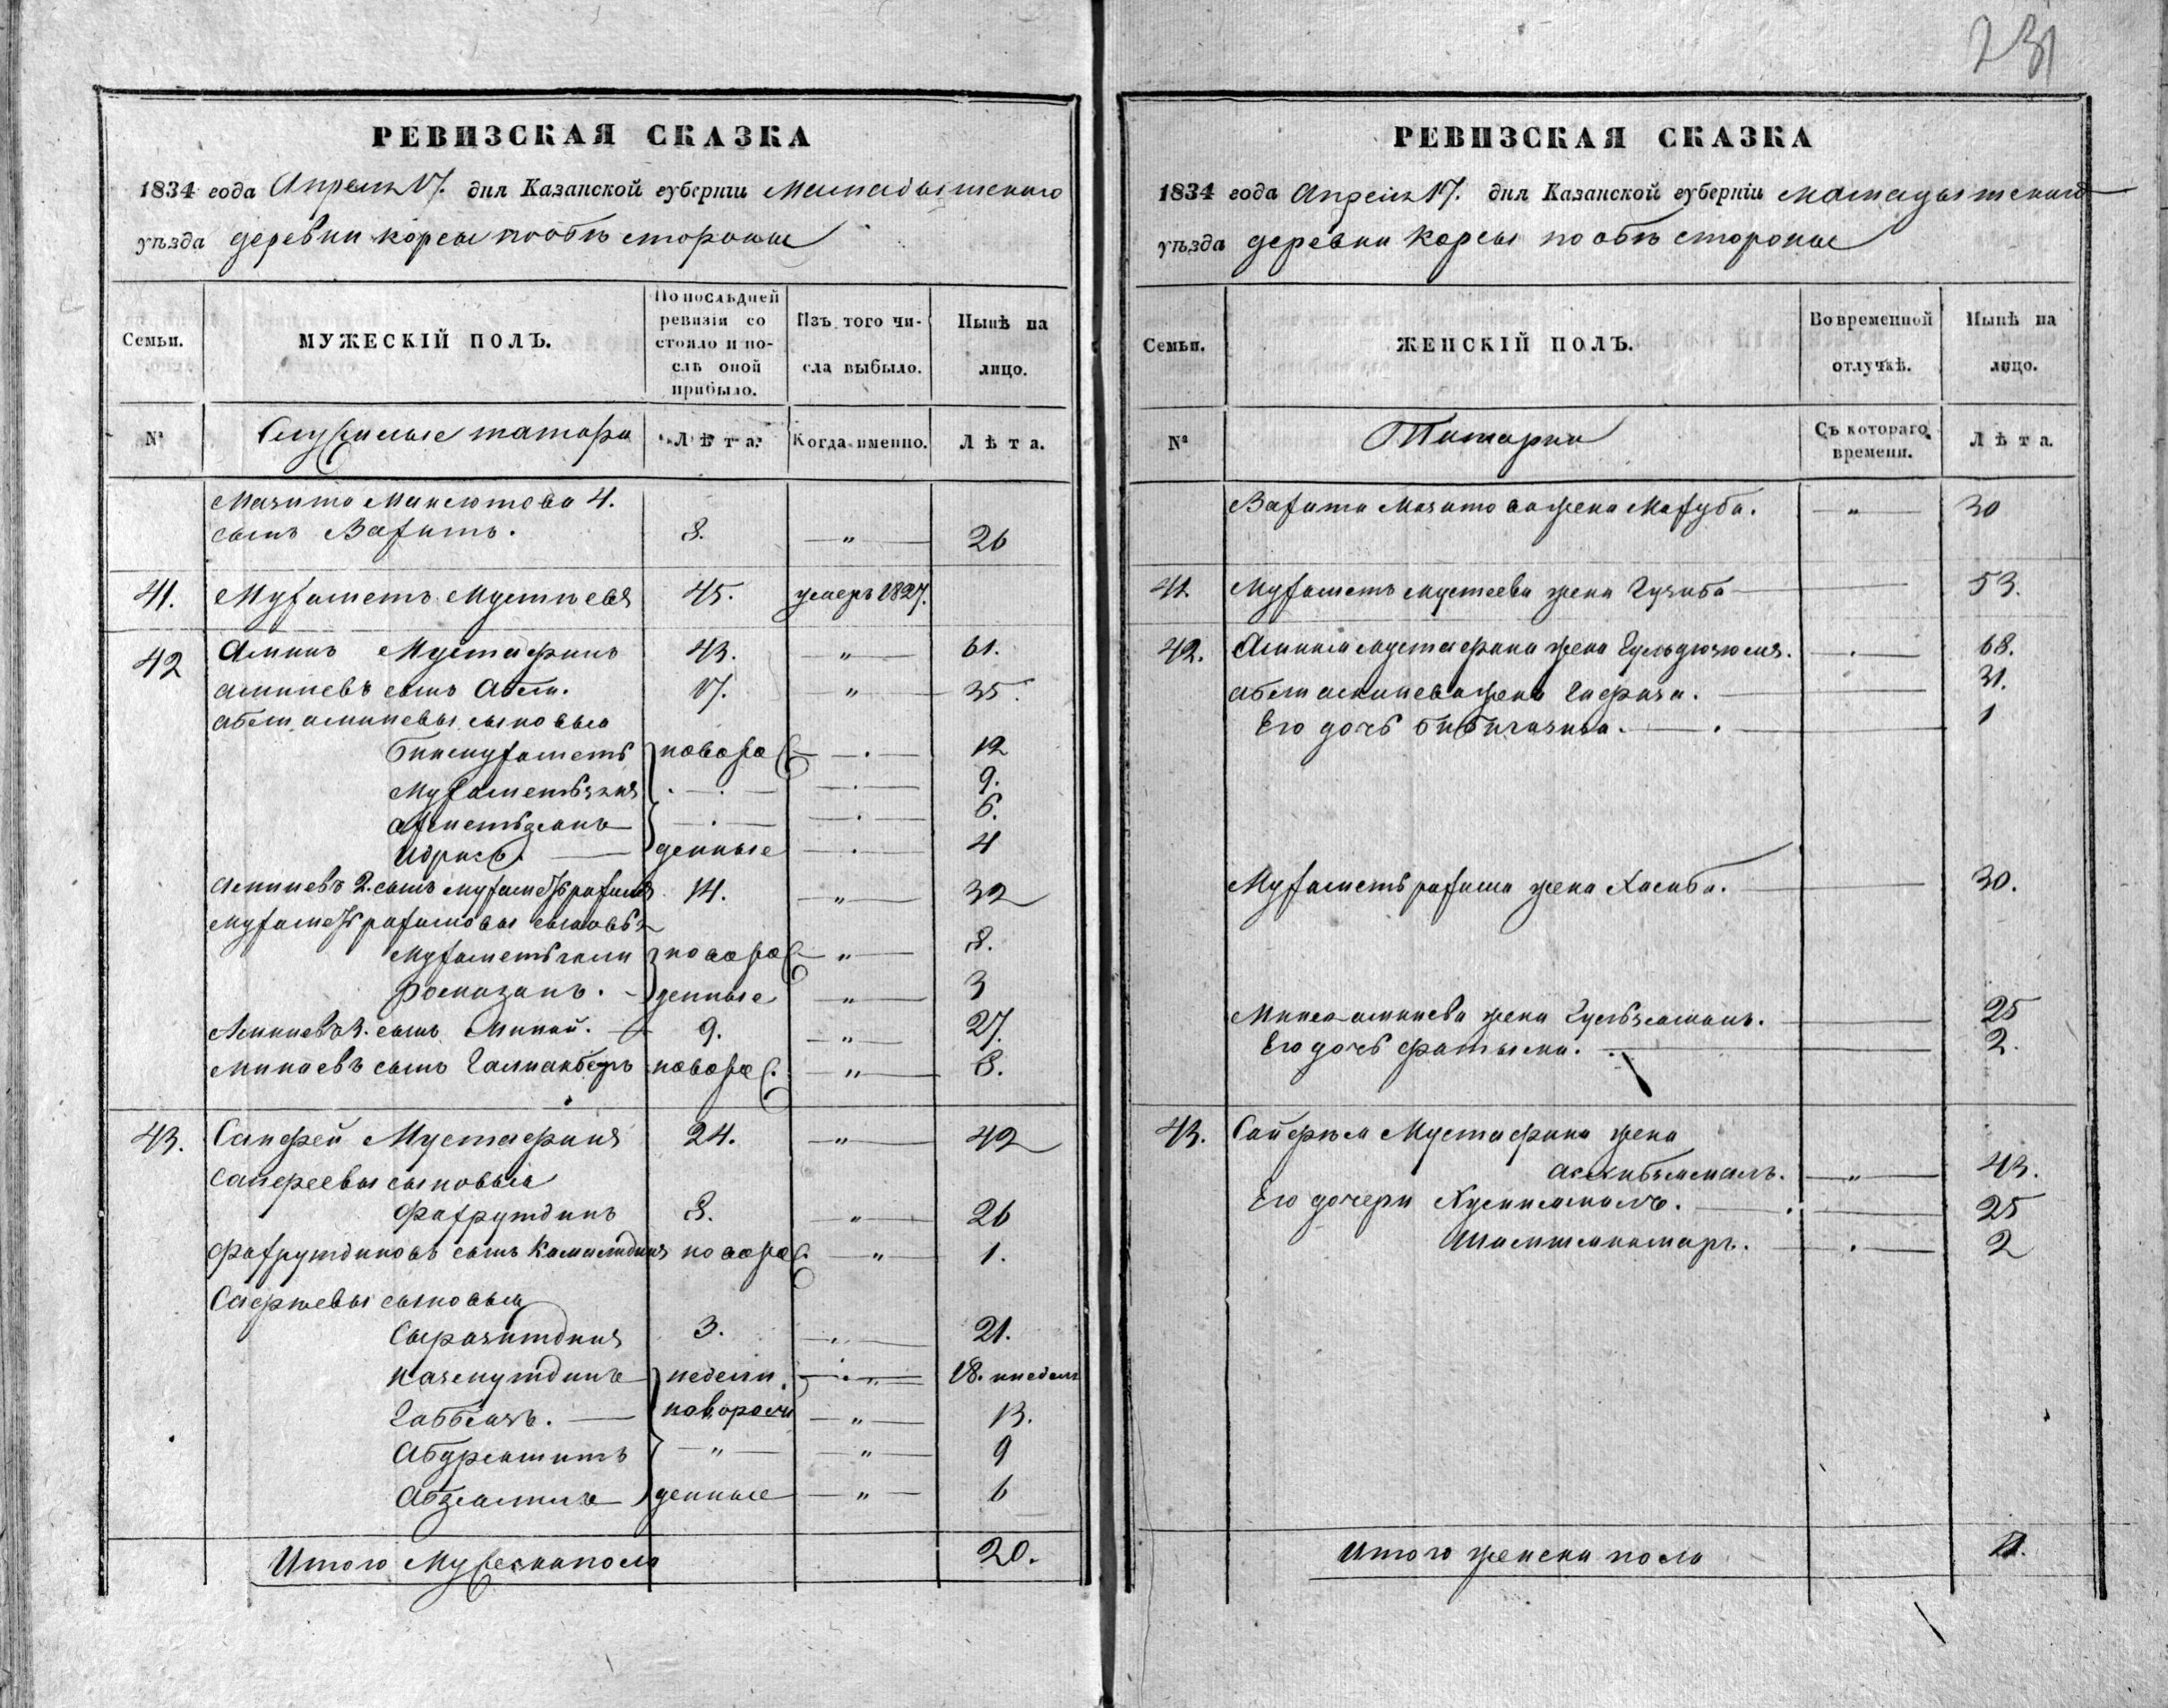 231
РЕВИЗСКАЯ СКАЗКА
1834 года Апреля 17. дня Казанской губерніи Мамадышскаго
уѣзда деревни Корсы по обѣ стороны
Семьи.
МУЖЕСКІЙ ПОЛЪ.
По послѣдней
ревизіи со
стояло и по-
слѣ оной
прибыло.
Изъ того чи-
сла выбыло.
Нынѣ на
лицо.
№
Служилые татары
Лѣта.
Когда именно.
Лѣта.
Мазита Мансютова 4.
сынъ Вагитъ. 8. " 26
41. Мухаметъ Мустѣевъ 45. умеръ 1827.
42 Аминъ Мустафинъ 43. " 61.
Аминевъ сынъ Абел. 17. " 35.
Абел Аминевы сыновья
Бикмухаметъ новоро 12
Мухаметьзян 9.
Ахметьзянъ 6.
Идрисъ. жденные 4
Аминевъ 2. сынъ Мухаметьрахимъ 14. " 32
Мухаметьрахимовы сыновья
Мухаметьгали новорож " 8.
Рамазанъ. денные " 3
Аминевъ 3. сынъ Минай. 9. " 27.
Минаевъ сынъ Галиакберъ новорож. " 8.
43. Сапфей Мустафинъ 24. " 42
Сапфеевы сыновья
Фахрутдинъ 8. " 26
Фахрутдиновъ сынъ Камалтдинъ новорож. " 1.
Сафѣевы сыновья
Сыразитдинъ 3. " 21.
недели " 18. и недели
Габбасъ. новорож " 13.
Абдрешитъ " " 9
Абзялилъ денные " 6
Итого Мужеска пола 20.
РЕВИЗСКАЯ СКАЗКА
1834 года Апреля 17. дня Казанской губерніи Мамадышскаго
уѣзда деревни Корсы по обѣ стороны
Семьи.
ЖЕНСКІЙ ПОЛЪ.
Во временной
отлучкѣ.
Нынѣ на
лицо.
№
Татарки
Съ котораго
времени.
Лѣта.
Вагита Мазитова жена Махуба. " 30
41. Мухаметъ Мустеева жена 53.
42. Амина Мустафина жена 68.
Абел Аминева жена 31.
Его дочь Бибигазиза. 1
Мухаметьрахима жена Хасиба. 30.
Миная Аминева жена Гульзяманъ. 25
Его дочь Фатыма. 2.
43. Сапфѣя Мустафина жена
" 43.
Его дочери Хуснизямалъ. 25
Шамшикамаръ. 2
Итого женска пола 11.